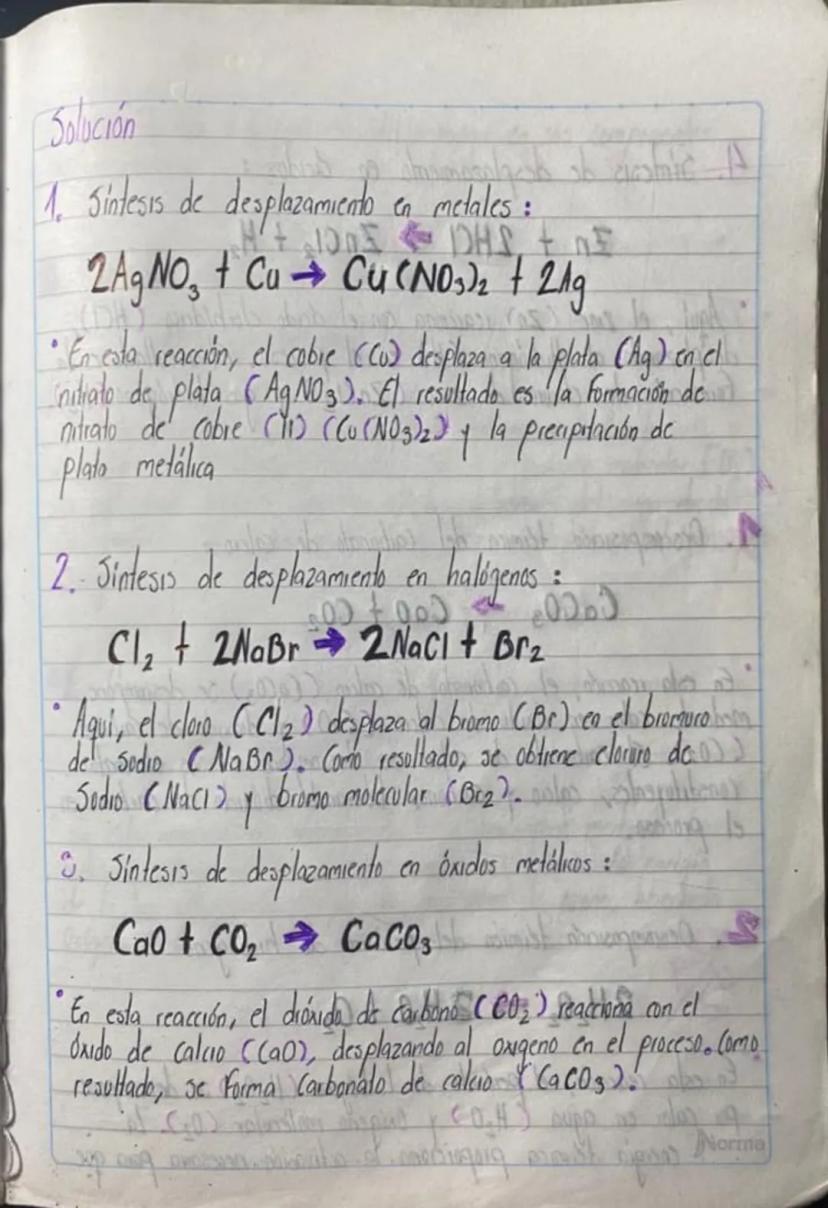 Solución
1. Síntesis de desplazamiento en metales:
2AgNO₃ + Cu → Cu(NO₃)₂ + 2Ag
• En esta reacción, el cobre (Cu) desplaza a la plata (Ag) en el
nitrato de plata (AgNO₃). El resultado es la formación de
nitrato de cobre (II) (Cu(NO₃)₂) y la precipitación de
plata metálica
2. Síntesis de desplazamiento en halógenos:
Cl₂ + 2NaBr → 2NaCl + Br₂
• Aquí, el cloro (Cl₂) desplaza al bromo (Br) en el bromuro
de sodio (NaBr). Como resultado, se obtiene cloruro de
Sodio (NaCl) y bromo molecular (Br₂).
3. Síntesis de desplazamiento en óxidos metálicos:
CaO + CO₂ → CaCO₃
• En esta reacción, el dióxido de carbono (CO₂) reacciona con el
óxido de calcio (CaO), desplazando al oxígeno en el proceso. Como
resultado, se forma Carbonato de calcio (CaCO₃).
Norma